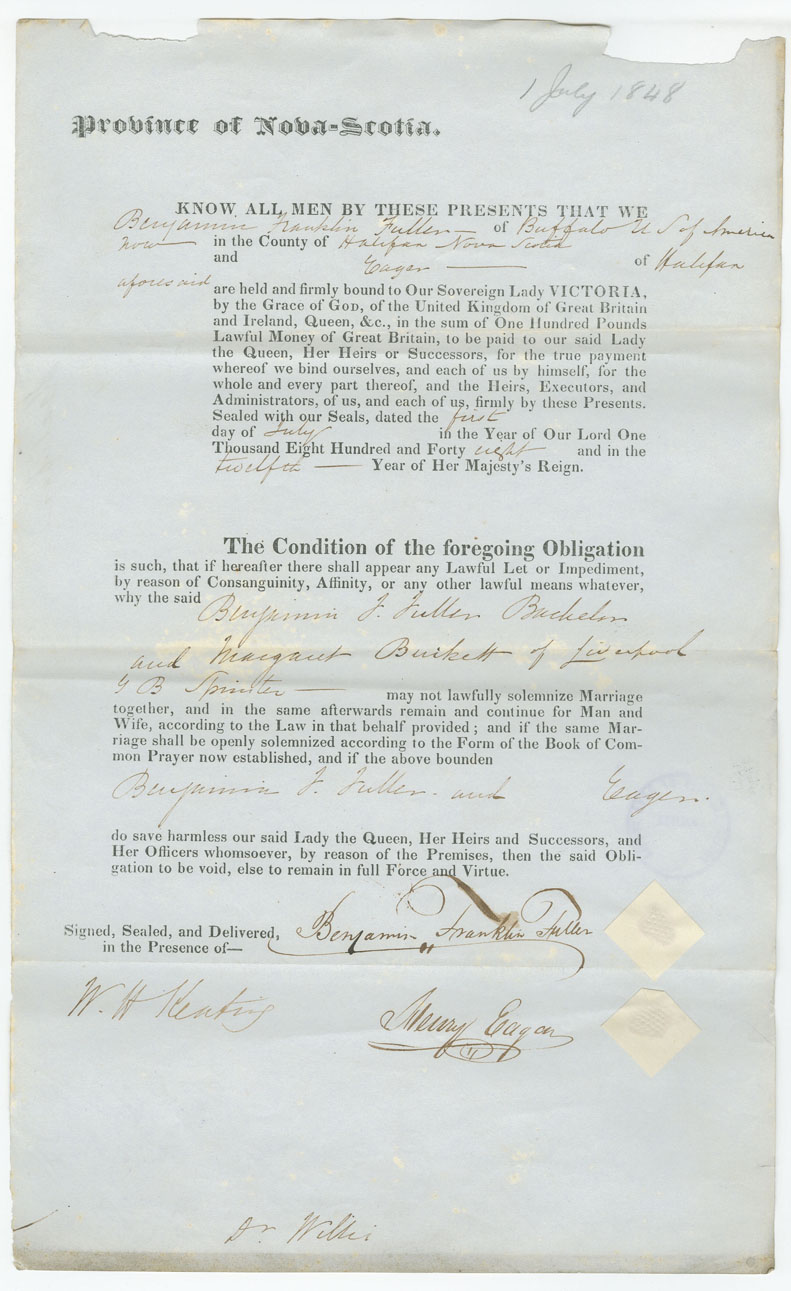 1 July 1848
Province of Nova-Scotia.
KNOW ALL MEN BY THESE PRESENTS THAT WE
Benjamin Franklin Fuller — of Buffalo U S of America
now — in the County of Halifax Nova Scotia
and Eager — of Halifax
aforesaid are held and firmly bound to Our Sovereign Lady VICTORIA,
by the Grace of GOD, of the United Kingdom of Great Britain
and Ireland, Queen, &c., in the sum of One Hundred Pounds
Lawful Money of Great Britain, to be paid to our said Lady
the Queen, Her Heirs or Successors, for the true payment
whereof we bind ourselves, and each of us by himself, for the
whole and every part thereof, and the Heirs, Executors, and
Administrators, of us, and each of us, firmly by these Presents.
Sealed with our Seals, dated the first
day of July in the Year of Our Lord One
Thousand Eight Hundred and Forty eight and in the
twelfth — Year of Her Majesty's Reign.
The Condition of the foregoing Obligation
is such, that if hereafter there shall appear any Lawful Let or Impediment,
by reason of Consanguinity, Affinity, or any other lawful means whatever,
why the said Benjamin F. Fuller Bachelor
and Margaret Burkett of Liverpool
G B Spinster — may not lawfully solemnize Marriage
together, and in the same afterwards remain and continue for Man and
Wife, according to the Law in that behalf provided; and if the same Mar-
riage shall be openly solemnized according to the Form of the Book of Com-
mon Prayer now established, and if the above bounden
Benjamin F. Fuller. and Eager.
do save harmless our said Lady the Queen, Her Heirs and Successors, and
Her Officers whomsoever, by reason of the Premises, then the said Obli-
gation to be void, else to remain in full Force and Virtue.
Signed, Sealed, and Delivered, Benjamin Franklin Fuller
in the Presence of—
W. H Keating
Henry Eagar
Dr Willis